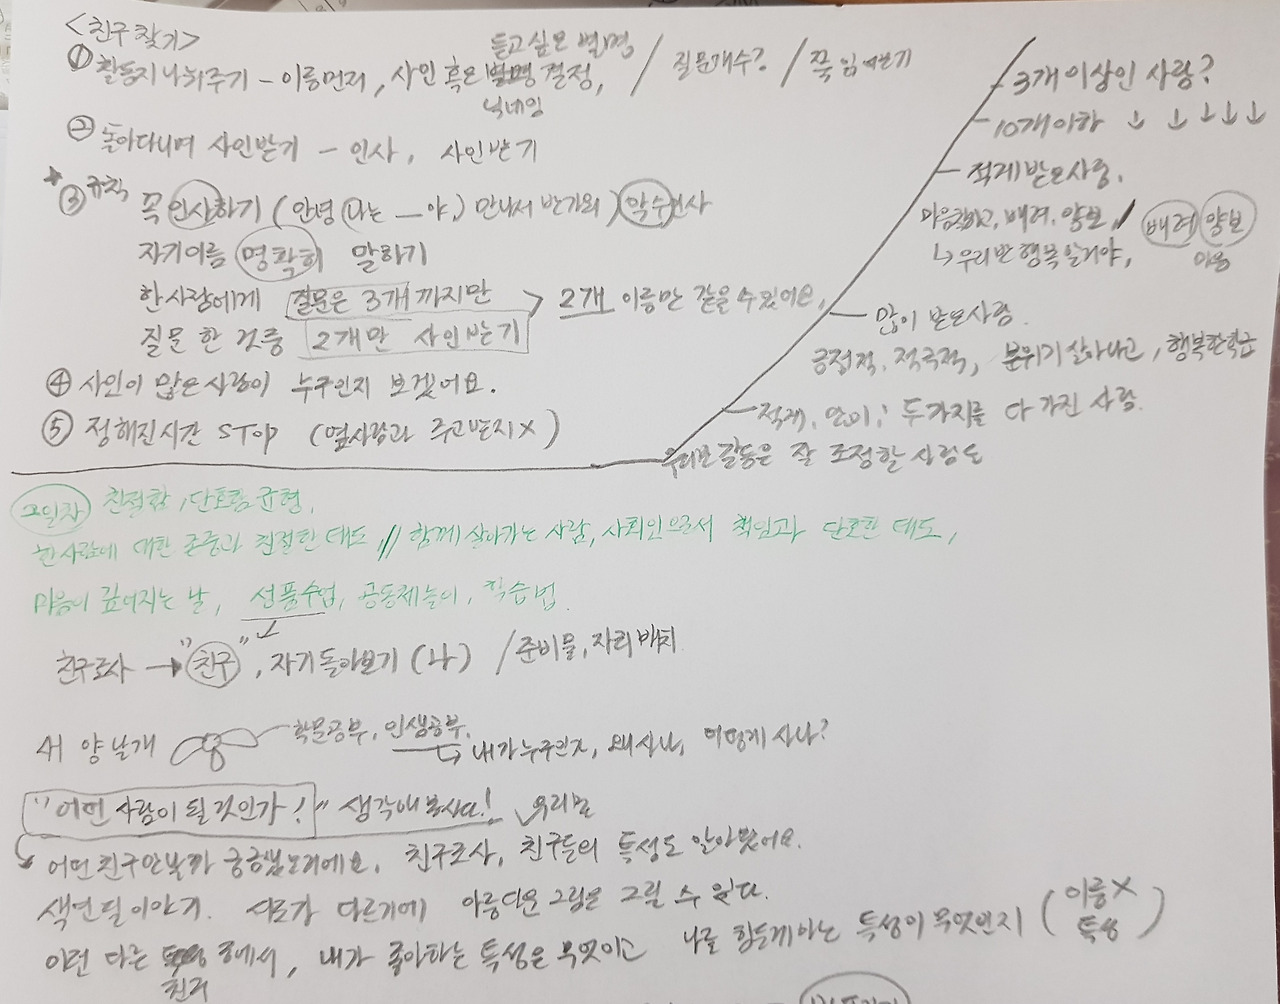 <친구 찾기>
듣고싶은 별명
① 활동지 나눠주기 - 이름먼저, 사인 혹은 별명 결정, / 질문개수? / 쭉
닉네임
② 돌아다니며 사인받기 - 인사, 사인받기
★③ 규칙 꼭 인사하기 (안녕 나는 __야,) 만나서 반가워) 악수인사
자기이름 명확히 말하기
한사람에게 질문은 3개까지만 > 2개 이름만 같을 수 있어요,
질문 한 것중 2개만 사인받기
④ 사인이 많은 사람이 누구인지 보겠어요.
⑤ 정해진시간 STOP (옆사람과 주고받지X)
- 3개 이상인 사람?
- 10개이하 ↓ ↓ ↓ ↓ ↓
- 적게 받은사람.
배려, 양보, 배려 양보
↳ 우리반 행복할거야, 마음
- 많이 받은사람.
긍정적, 적극적, 분위기 살아나고, 행복한학급
- 적게, 많이; 두가지를 다 가진 사람.
우리반 갈등은 잘 조정할 사람들
2일차 친절함, 단호함 균형,
한사람에 대한 존중과 친절한 태도, // 함께 살아가는 사람, 사회인으로서 책임과 단호한 태도,
마음이 깊어지는 날, 선플수업, 공동체놀이, 학습법.
친구조사 → "친구", 자기돌아보기 (나) / 준비물, 자리배치
새 양날개 학문공부, 인생공부.
↳ 내가 누구인지, 왜사나, 어떻게 사나?
"어떤 사람이 될 것인가!" 생각해 봅시다!
어떤 친구 궁금 친구조사, 친구들의 특성도 알아봤어요.
색연필이야기. 서로가 다르기에 아름다운 그림을 그릴 수 있다.
이런 다른 중에서, 내가 좋아하는 특성은 무엇이고 나를 힘들게 하는 특성이 무엇인지 (이름X
특성)
친구